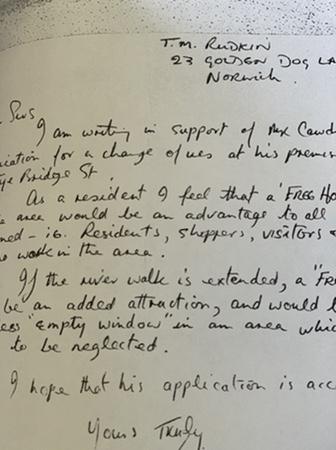 T.M. RUDKIN
23 GOLDEN DOG LA
NORWICH.
Sirs
I am writing in support of Mr Cawd
iation for a change of ues at his premis
ye Bridge St.
As a resident I feel that a "FREE Ho
area would be an advantage to all
ned - ie. Residents, shoppers, visitors &
o work in the area.
If the river walk is extended, a "Fre
be an added attraction, and would l
ess "empty window" in an area whic
to be neglected.
I hope that his application is acc
Yours Truly